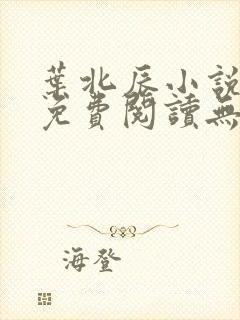 葉北辰小說
免費閱讀無
海登